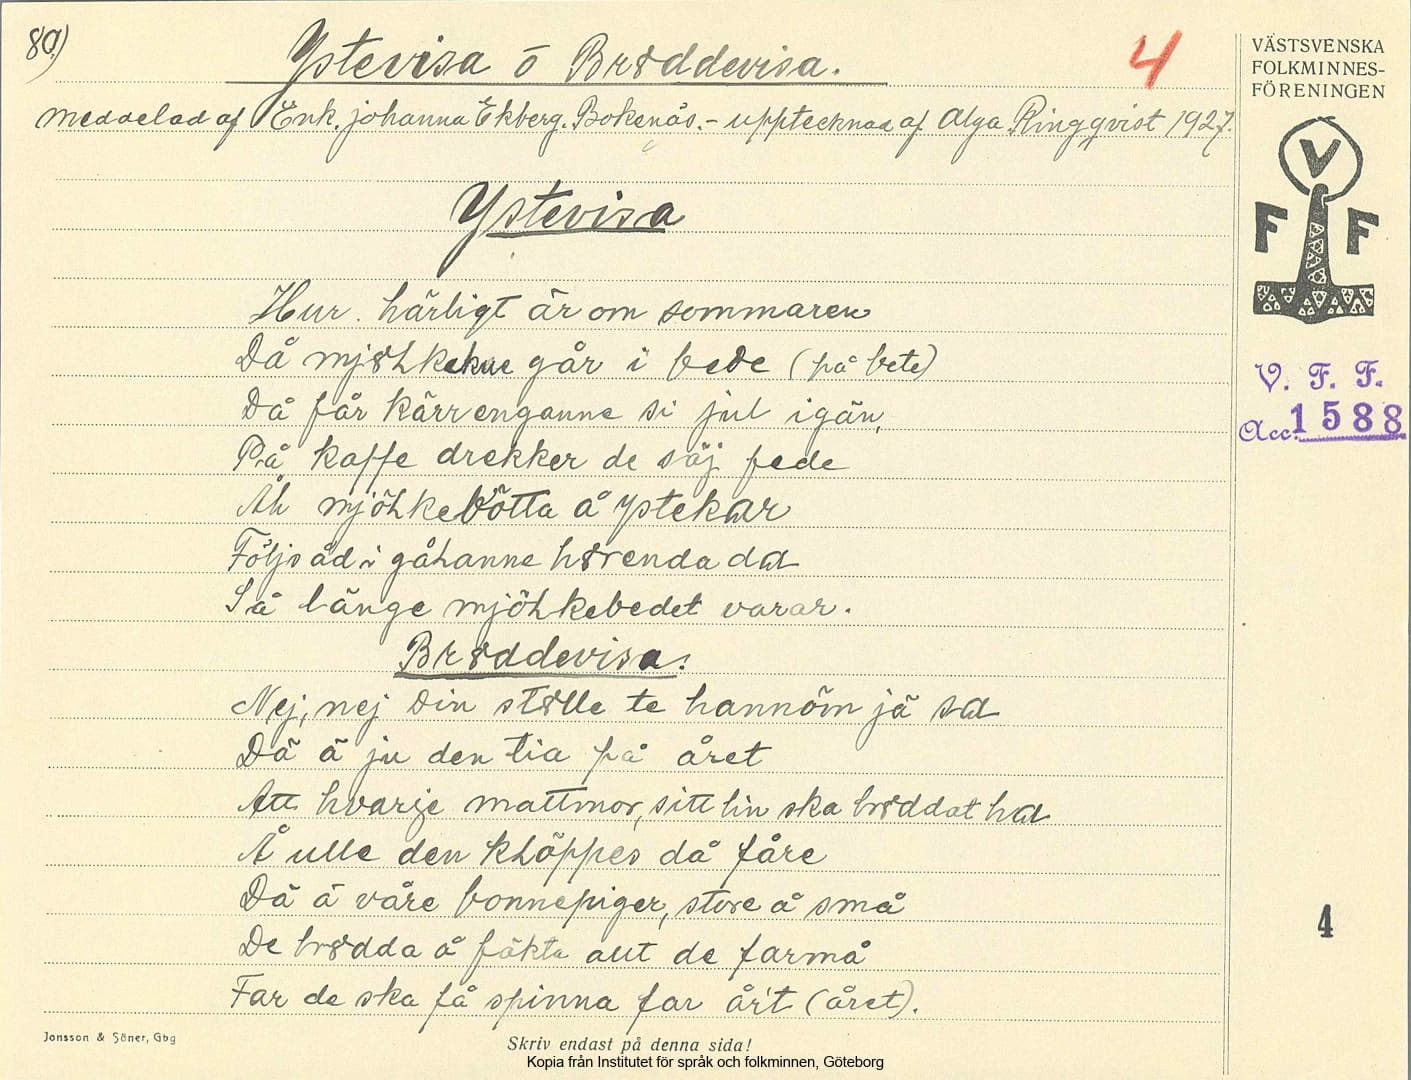 80)
Ystevisa ō Brøddevisa.
4
VÄSTSVENSKA
FOLKMINNES-
FÖRENINGEN
meddelad af Enk. Johanna Ekberg. Bokenäs. - upptecknad af Alga Ringqvist 1927.
V
F F
Ystevisa
Hur härligt är om sommaren
Då mjøhkekue går i bede (på bete)
Då får kärrenganne si jul igän,
På kaffe drekker de säj fede
Äh mjöhkebötta å ystekar
Följs åd i gåhanne hørenda da
Så länge mjöhkebedet varar.
V. F. F.
Acc. 1588
Brøddevisa.
Nej, nej Din stølle te hannöm jä sa
Dä ä ju den tia på året
Att hvarje mattmor, sitt lin ska brøddat ha
Å ulle den khöppes då fåre
Dä ä våre bonnepiger, store å små
De brødda å fäkta allt de farmå
Far de ska få spinna far års't (året).
4
Jonsson & Söner, Gbg
Skriv endast på denna sida!
Kopia från Institutet för språk och folkminnen, Göteborg